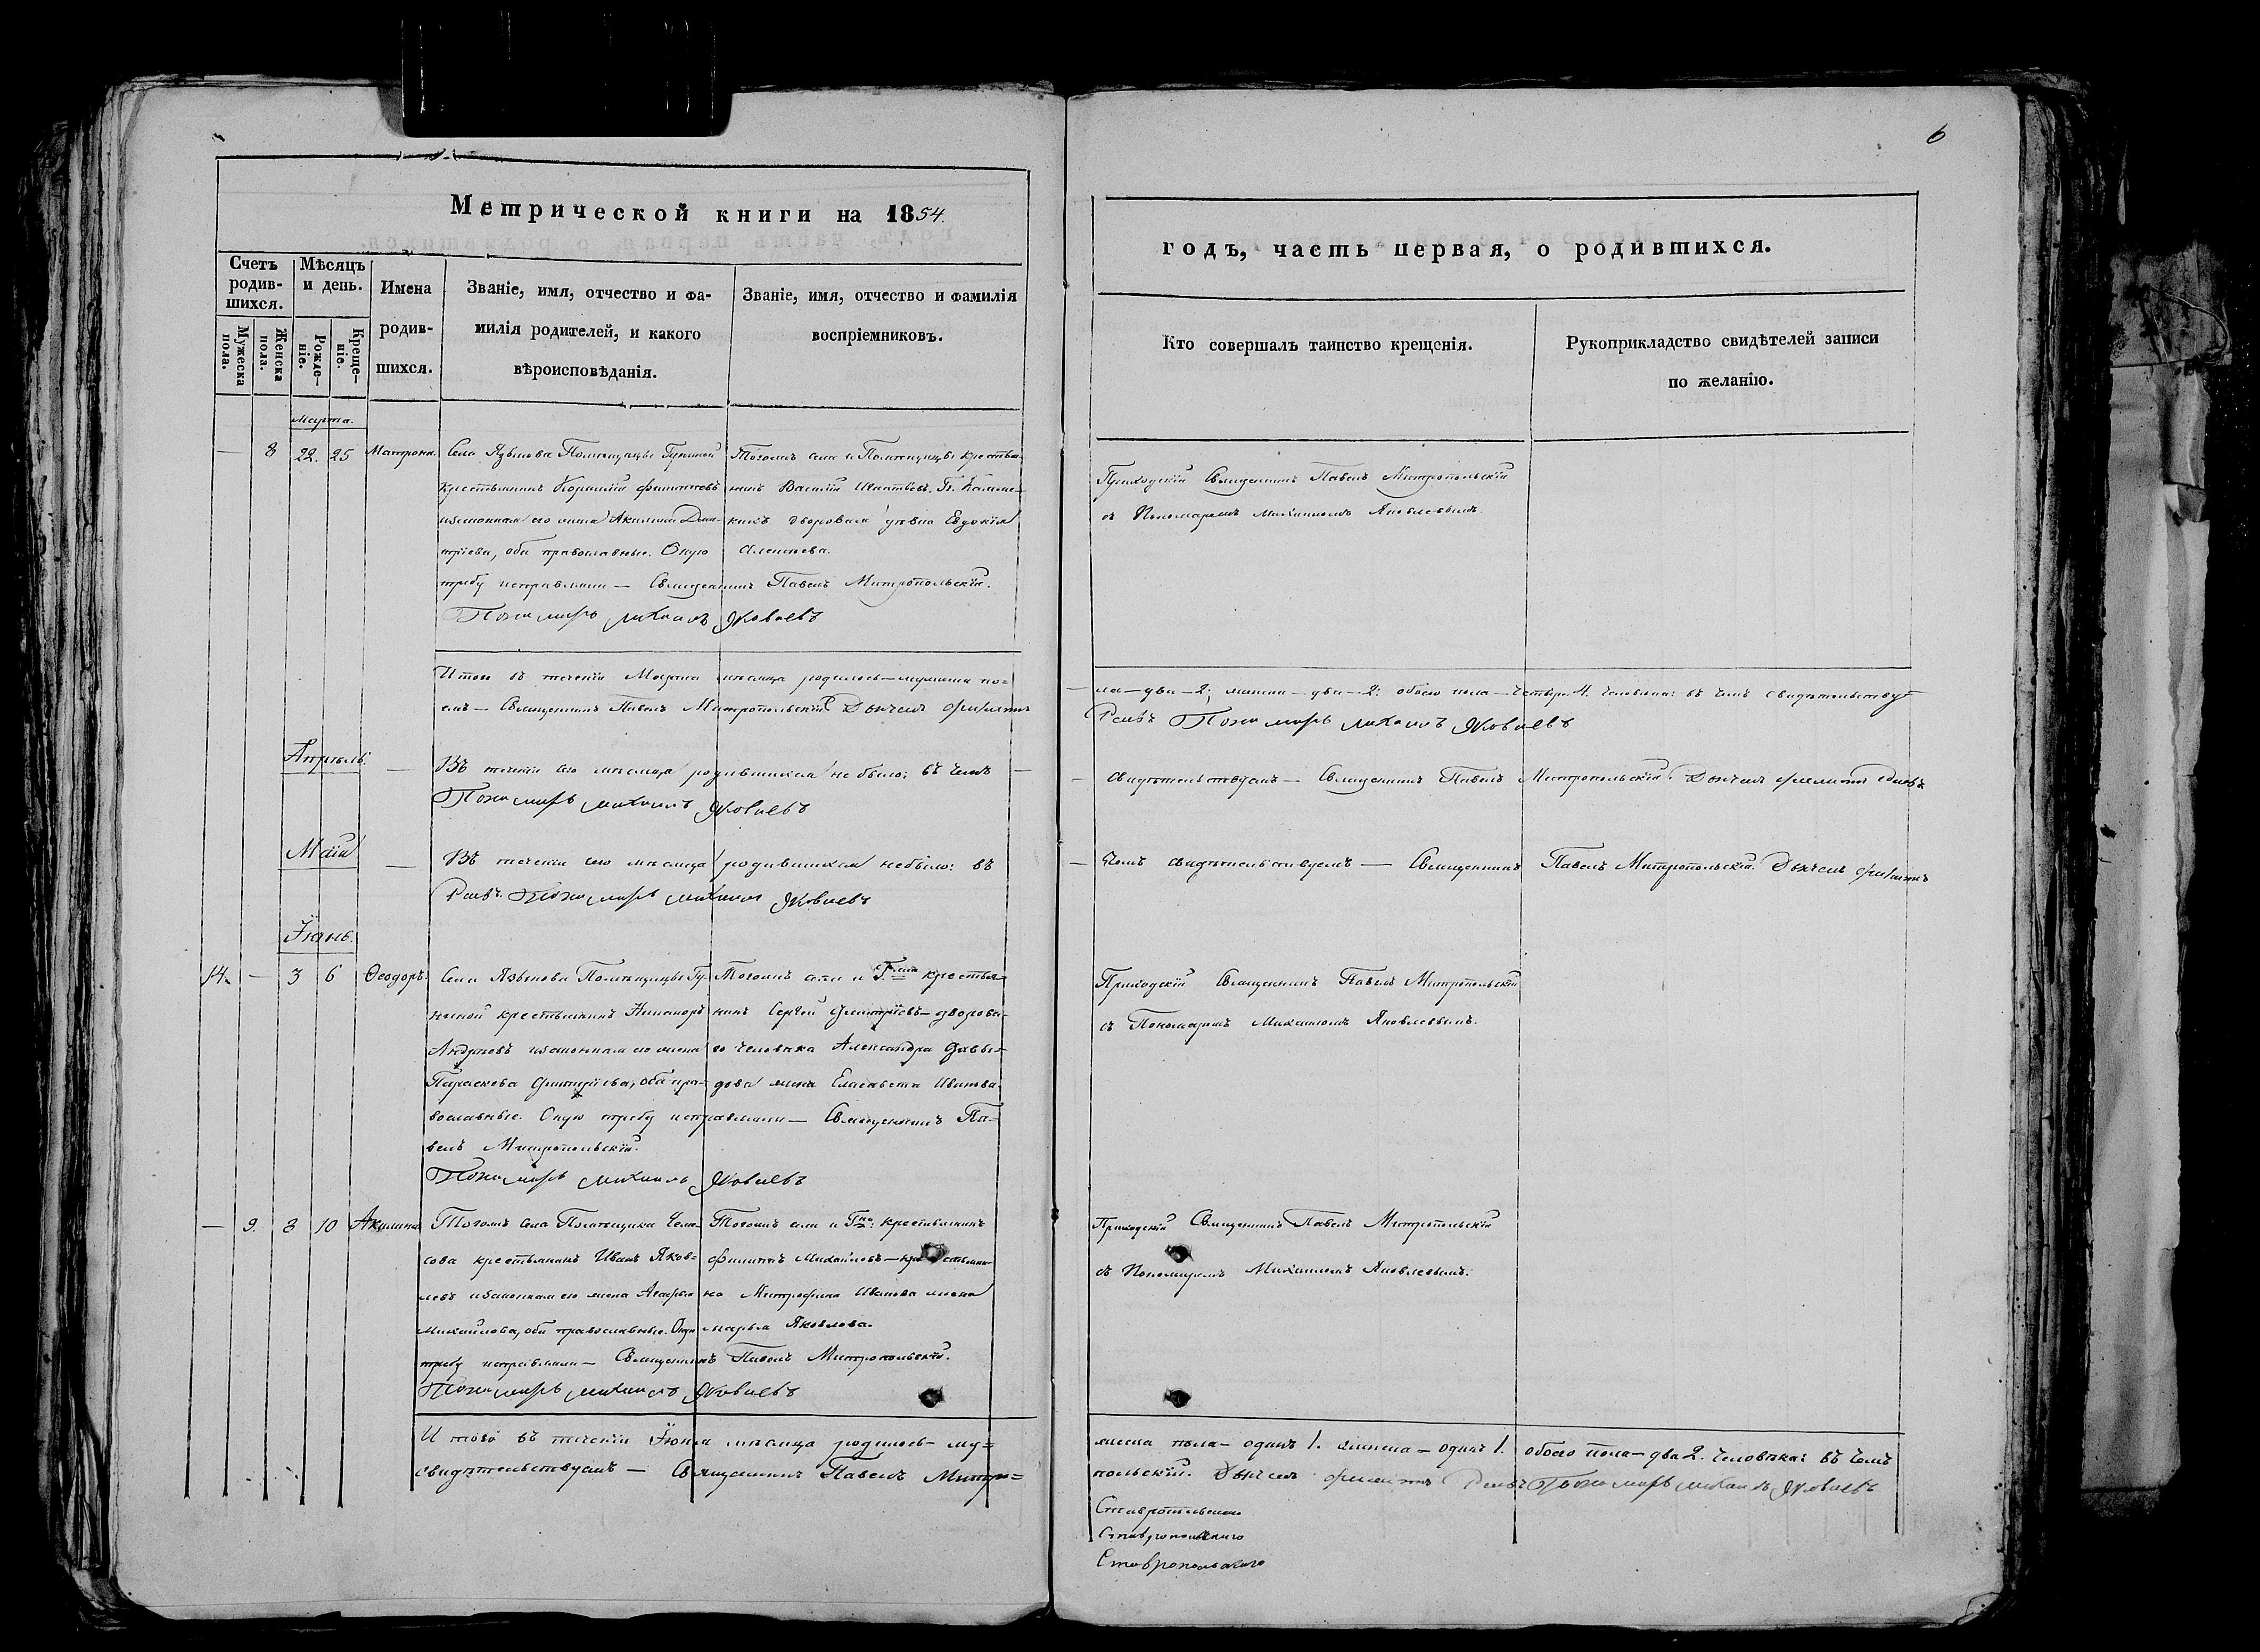 6
Метрической книги на 1854.
годъ, часть первая, о родившихся.
Счетъ родив-шихся.
Мѣсяцъ и день.
Имена родив-шихся.
Званіе, имя, отчество и фа-
милія родителей, и какого
вѣроисповѣданія.
Званіе, имя, отчество и фамилія
воспріемниковъ.
Мужеска пола.
Женска пола.
Рожде-ніе.
Креще-ніе.
Кто совершалъ таинство крещенія.
Рукоприкладство свидѣтелей записи
по желанію.
Марта.
— 8 22. 25 Матрона.
Села Языкова Помѣщицы
крестьянинъ
законная его жена Акилина Дми-
тріева, оба православные. Оную
требу исправляли — Священникъ Павелъ Митропольскій.
Пономарь Михаилъ Яковлевъ
Тогожъ села и Помѣщицы крестья-
нинъ Василій
дворовая дѣвка Евдокія
Алексѣева.
Приходскій Священникъ Павелъ Митропольскій
съ Пономаремъ Михаиломъ Яковлевымъ.
Итого въ теченіи Марта мѣсяца родилось — мужеска по=
ла — два — 2; женска — два — 2: обоего пола — четверо 4. человѣка: въ чемъ свидѣтельству=
емъ — Священникъ Павелъ Митропольскій
Пономарь Михаилъ Яковлевъ
Апрѣль.
— Въ теченіи сего мѣсяца родившихся не было: въ чемъ —
— свидѣтельствуемъ — Священникъ Павелъ Митропольскій.
Пономарь Михаилъ Яковлевъ
Маій
— Въ теченіи сего мѣсяца родившихся не было: въ
— чемъ свидѣтельствуемъ — Священникъ Павелъ Митропольскій.
Пономарь Михаилъ Яковлевъ
Іюнь.
14. — 3 6 Ѳеодоръ.
Села Языкова Помѣщицы
крестьянинъ Никаноръ
Андреевъ законная его жена
Параскева Дмитріева, оба пра-
вославные. Оную требу исправляли — Священникъ Па=
велъ Митропольскій.
Пономарь Михаилъ Яковлевъ
Тогожъ села и крестья=
нинъ Сергѣй Дмитріевъ — дворова-
го человѣка Александра Давы=
дова жена Елисавета Иванова.
Приходскій Священникъ Павелъ Митропольскій
съ Пономаремъ Михаиломъ Яковлевымъ.
— 9. 8 10 Акилина
Тогожъ села Помѣщика
крестьянинъ Иванъ Яков=
левъ законная его жена Агафья
Михайлова, оба православные. Оную
требу исправляли — Священникъ Павелъ Митропольскій.
Пономарь Михаилъ Яковлевъ
Тогожъ села и крестьянинъ
Филиппъ Михайловъ — крестьяни-
на Митрофана Иванова жена
Марья Яковлева.
Приходскій Священникъ Павелъ Митропольскій
съ Пономаремъ Михаиломъ Яковлевымъ.
И того въ теченіи Іюня мѣсяца родилось — му=
жеска пола — одинъ 1. женска — одна 1. обоего пола — два 2. человѣка: въ чемъ
свидѣтельствуемъ — Священникъ Павелъ Митро=
польскій. Пономарь Михаилъ Яковлевъ
Ставропольскаго
Ставропольскаго
Ставропольскаго